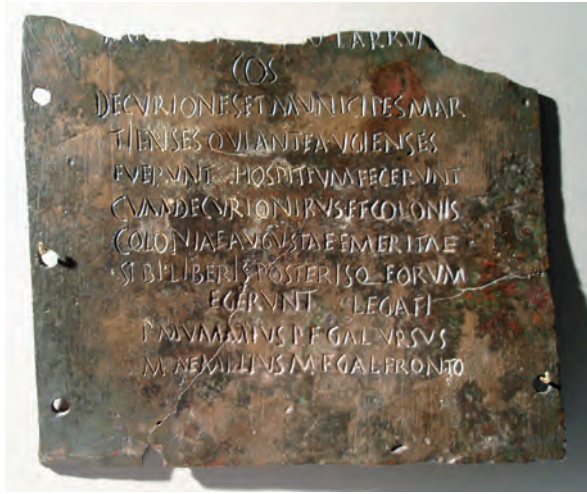 COS
DECVRIONES ET MVNICIPES MAR
TIENSES QVI ANTEA VGIENSES
FVERVNT HOSPITIVM FECERVNT
CVM DECVRIONIBVS ET COLONIS
COLONIAE AVGVSTAE EMERITAE
SIBI LIBERIS POSTERISQ EORVM
EGERVNT LEGATI
P MVMMIVS P F GAL VRSVS
M AEMILIVS M F GAL FRONTO